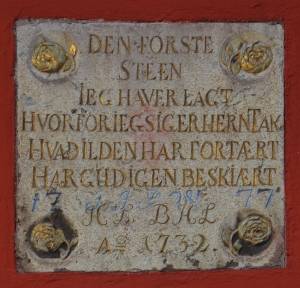 DEN FORSTE
STEEN
IEG HAVER LAGT
HVORFOR IEG SIGER HERN TAK
HVAD ILDEN HAR FORTÆRT
HAR GUD IGEN BESKIÆRT
H L B H L
Aº 1732.